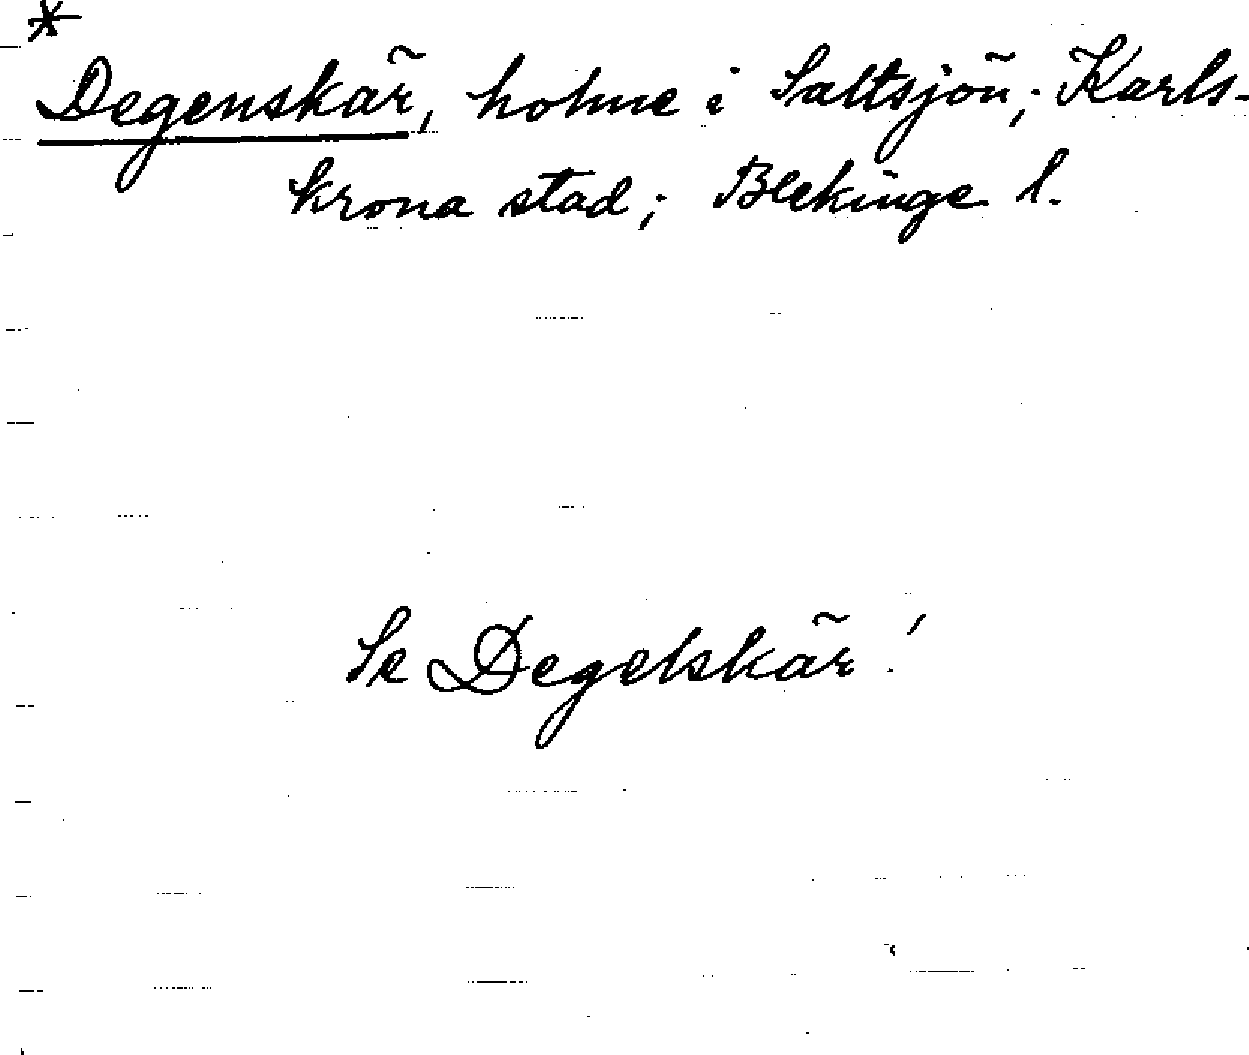 *
Degenskär, holme i Saltsjön; Karls-
krona stad; Blekinge l.
Se Degelskär!